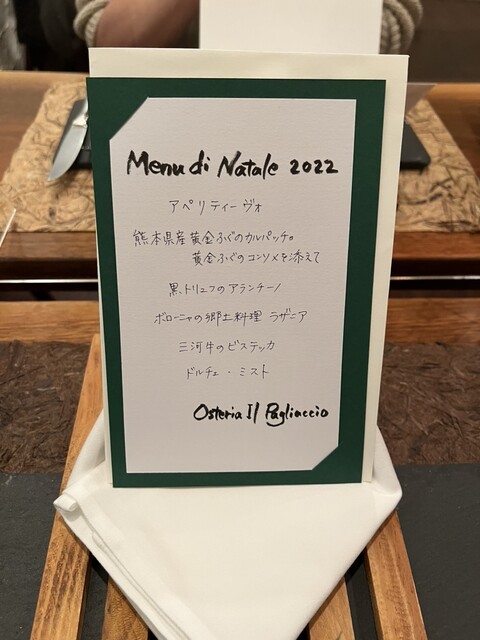 Menu di Natale 2022
アペリティーヴォ
熊本県産黄金ふぐのカルパッチョ
黄金ふぐのコンソメを添えて
黒トリュフのアランチーノ
ボローニャの郷土料理 ラザニア
三河牛のビステッカ
ドルチェ・ミスト
Osteria Il Pagliaccio